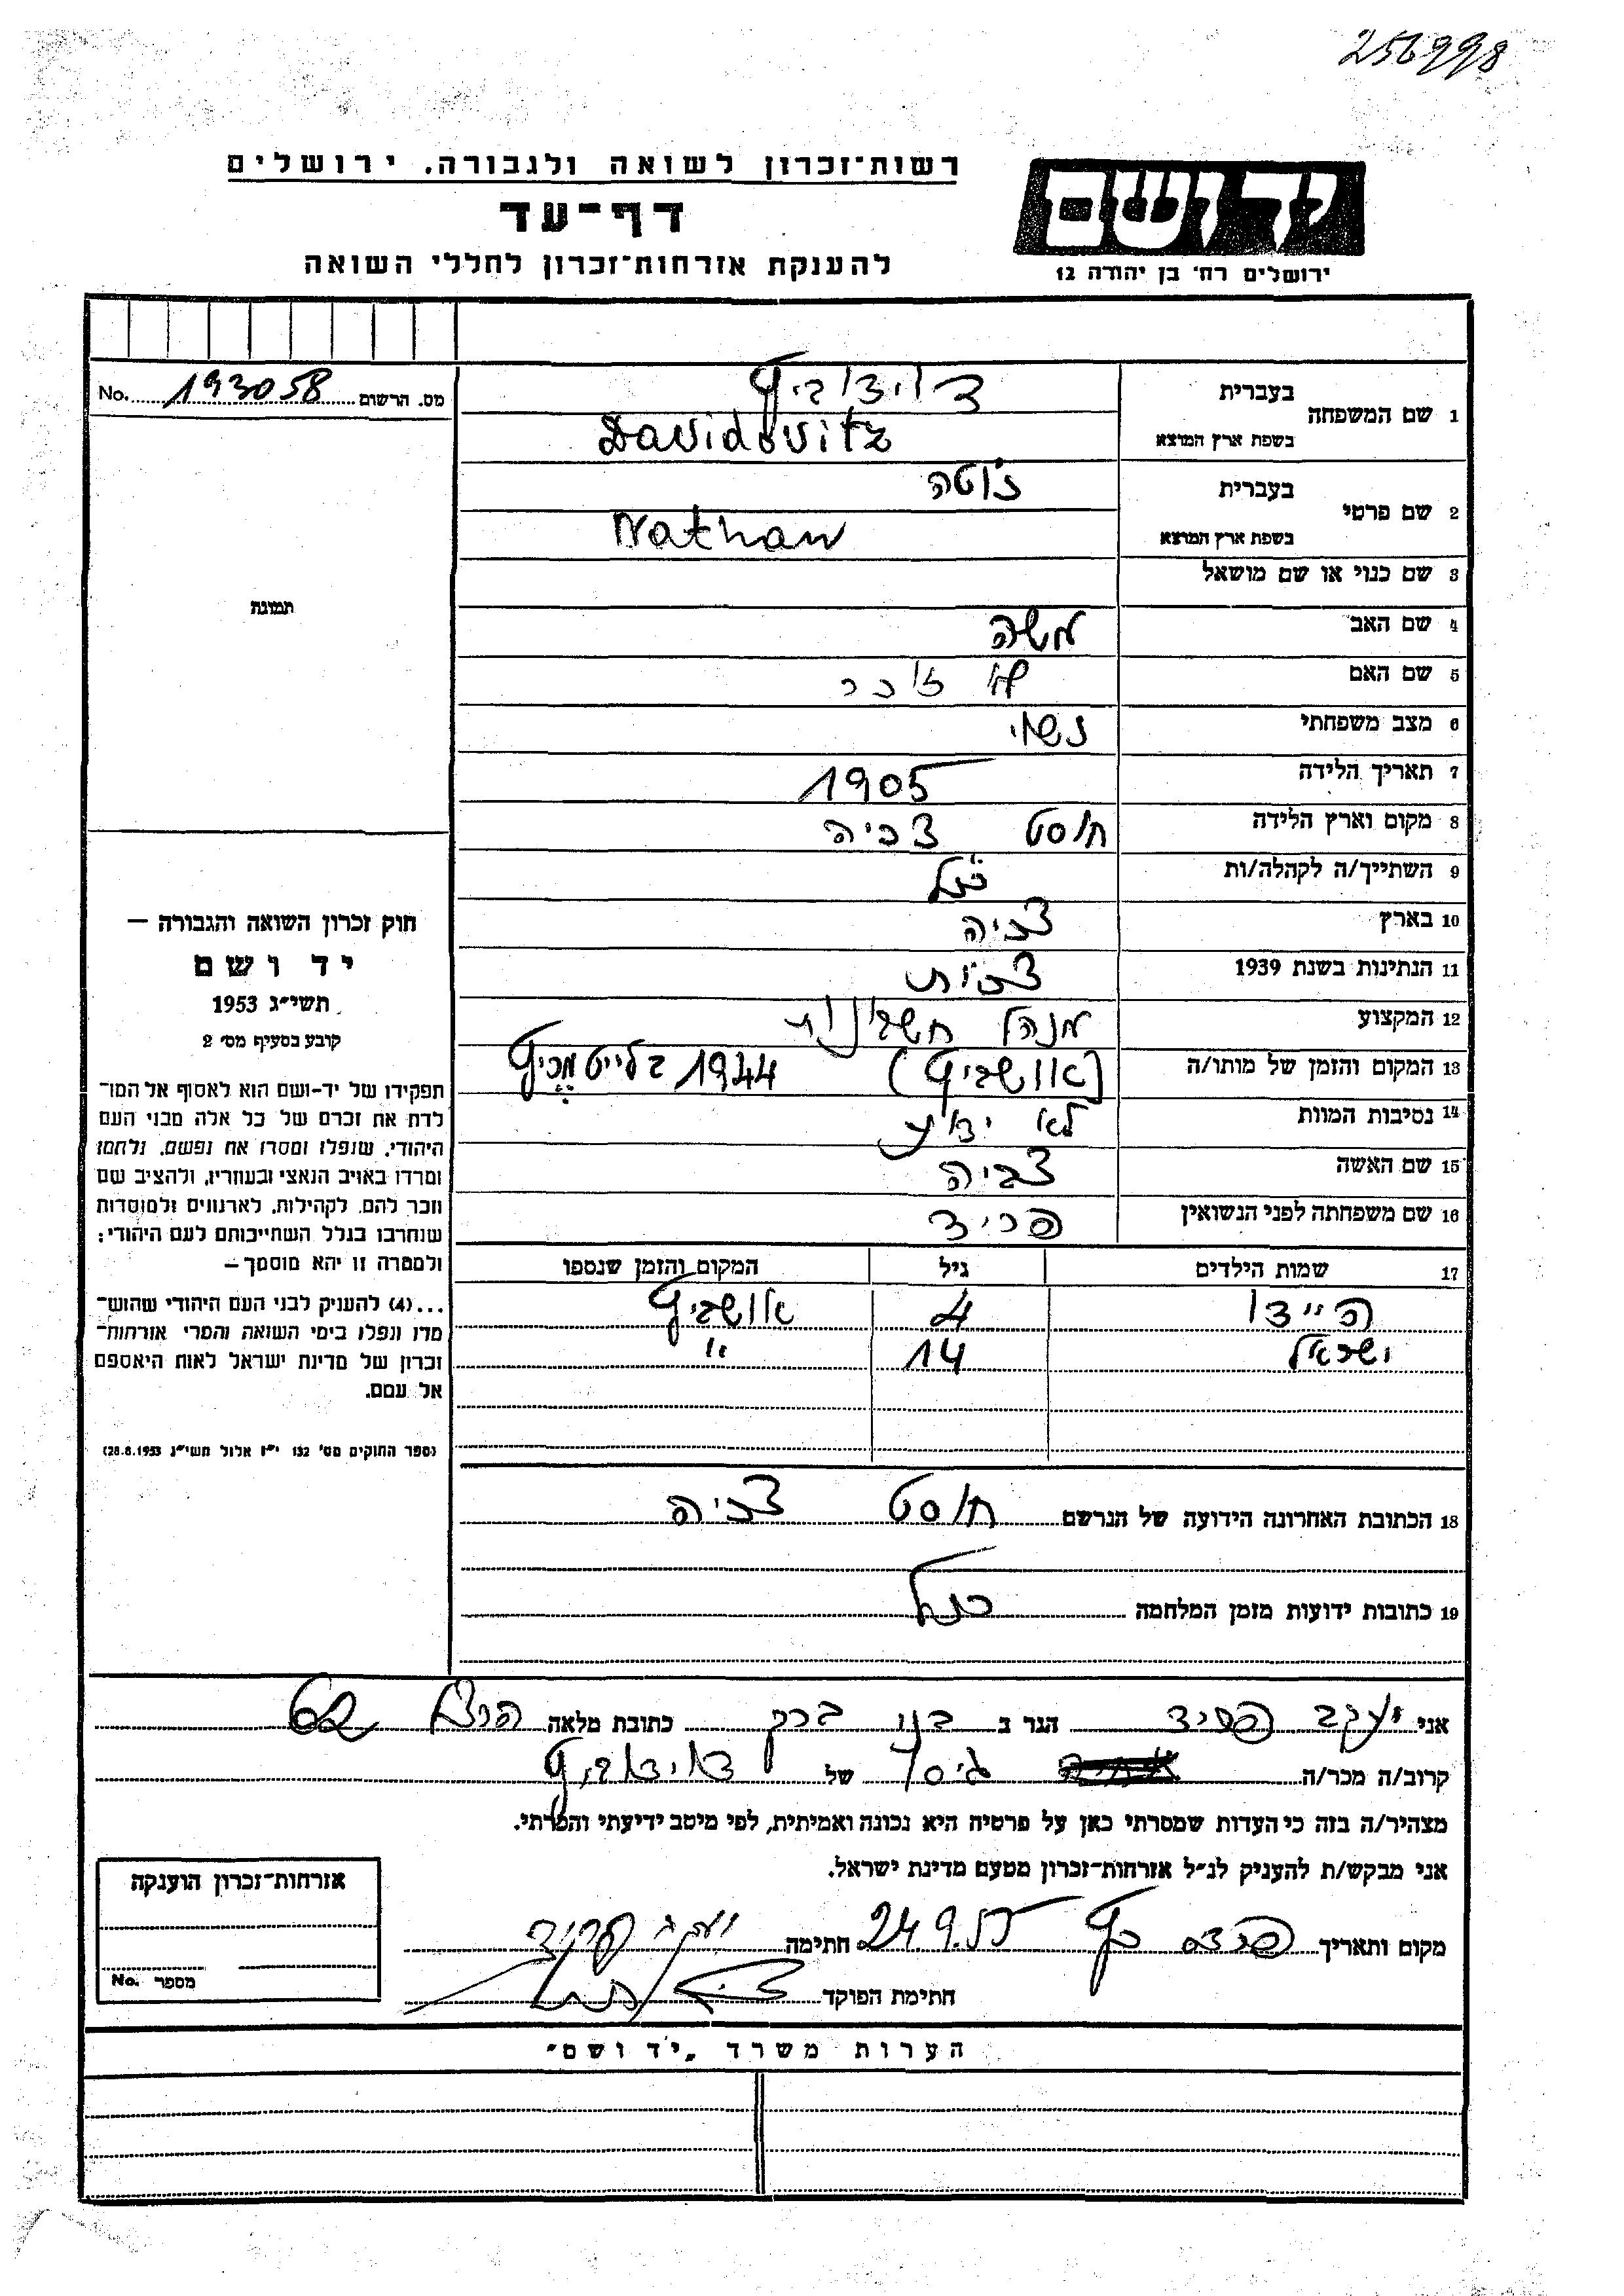 256998
רשות־זכרון לשואה ולגבורה, ירושלים
דף־עד
להענקת אזרחות־זכרון לחללי השואה
יד ושם
ירושלים רח׳ בן יהודה 12
מס. הרשום 193058 No.
תמונה
חוק זכרון השואה והגבורה —
יד ושם
תשי״ג 1953
קובע בסעיף מס׳ 2
תפקידו של יד־ושם הוא לאסוף אל המו־
לדת את זכרם של כל אלה מבני העם
היהודי, שנפלו ומסרו את נפשם, נלחמו
ומרדו באויב הנאצי ובעוזריו, ולהציב שם
וזכר להם, לקהילות, לארגונים ולמוסדות
שנחרבו בגלל השתייכותם לעם היהודי;
ולמטרה זו יהא מוסמך —
...(4) להעניק לבני העם היהודי שהוש־
מדו ונפלו בימי השואה והמרי אזרחות־
זכרון של מדינת ישראל לאות היאספם
אל עמם.
(ספר החוקים מס׳ 132 י״ז אלול תשי״ג 28.8.1953)
1 שם המשפחה בעברית דוידוביץ
בשפת ארץ המוצא Davidovitz
2 שם פרטי בעברית
בשפת ארץ המוצא Nathan
3 שם כנוי או שם מושאל
4 שם האב משה
5 שם האם לא זוכר
6 מצב משפחתי נשוי
7 תאריך הלידה 1905
8 מקום וארץ הלידה חוסט צכיה
9 השתייך/ה לקהלה/ות כנ״ל
10 בארץ צכיה
11 הנתינות בשנת 1939 צכית
12 המקצוע מנהל חשבונות
13 המקום והזמן של מותו/ה (אושביץ) 1944
14 נסיבות המוות לא ידוע
15 שם האשה צביה
16 שם משפחתה לפני הנשואין פריד
17 שמות הילדים גיל המקום והזמן שנספו
היידו 4 אושביץ
ישראל 14 "
18 הכתובת האחרונה הידועה של הנרשם חוסט צכיה
19 כתובות ידועות מזמן המלחמה כנ״ל
אני יעקב פריד הגר ב בני ברק כתובת מלאה הרצל 62
קרוב/ה מכר/ה גיסו של דוידוביץ
מצהיר/ה בזה כי העדות שמסרתי כאן על פרטיה היא נכונה ואמיתית, לפי מיטב ידיעתי והכרתי.
אני מבקש/ת להעניק לנ״ל אזרחות־זכרון מטעם מדינת ישראל.
מקום ותאריך פרדס כץ 24.9.55 חתימה יעקב פריד
חתימת הפוקד
אזרחות־זכרון הוענקה
מספר No.
הערות משרד „יד ושם״